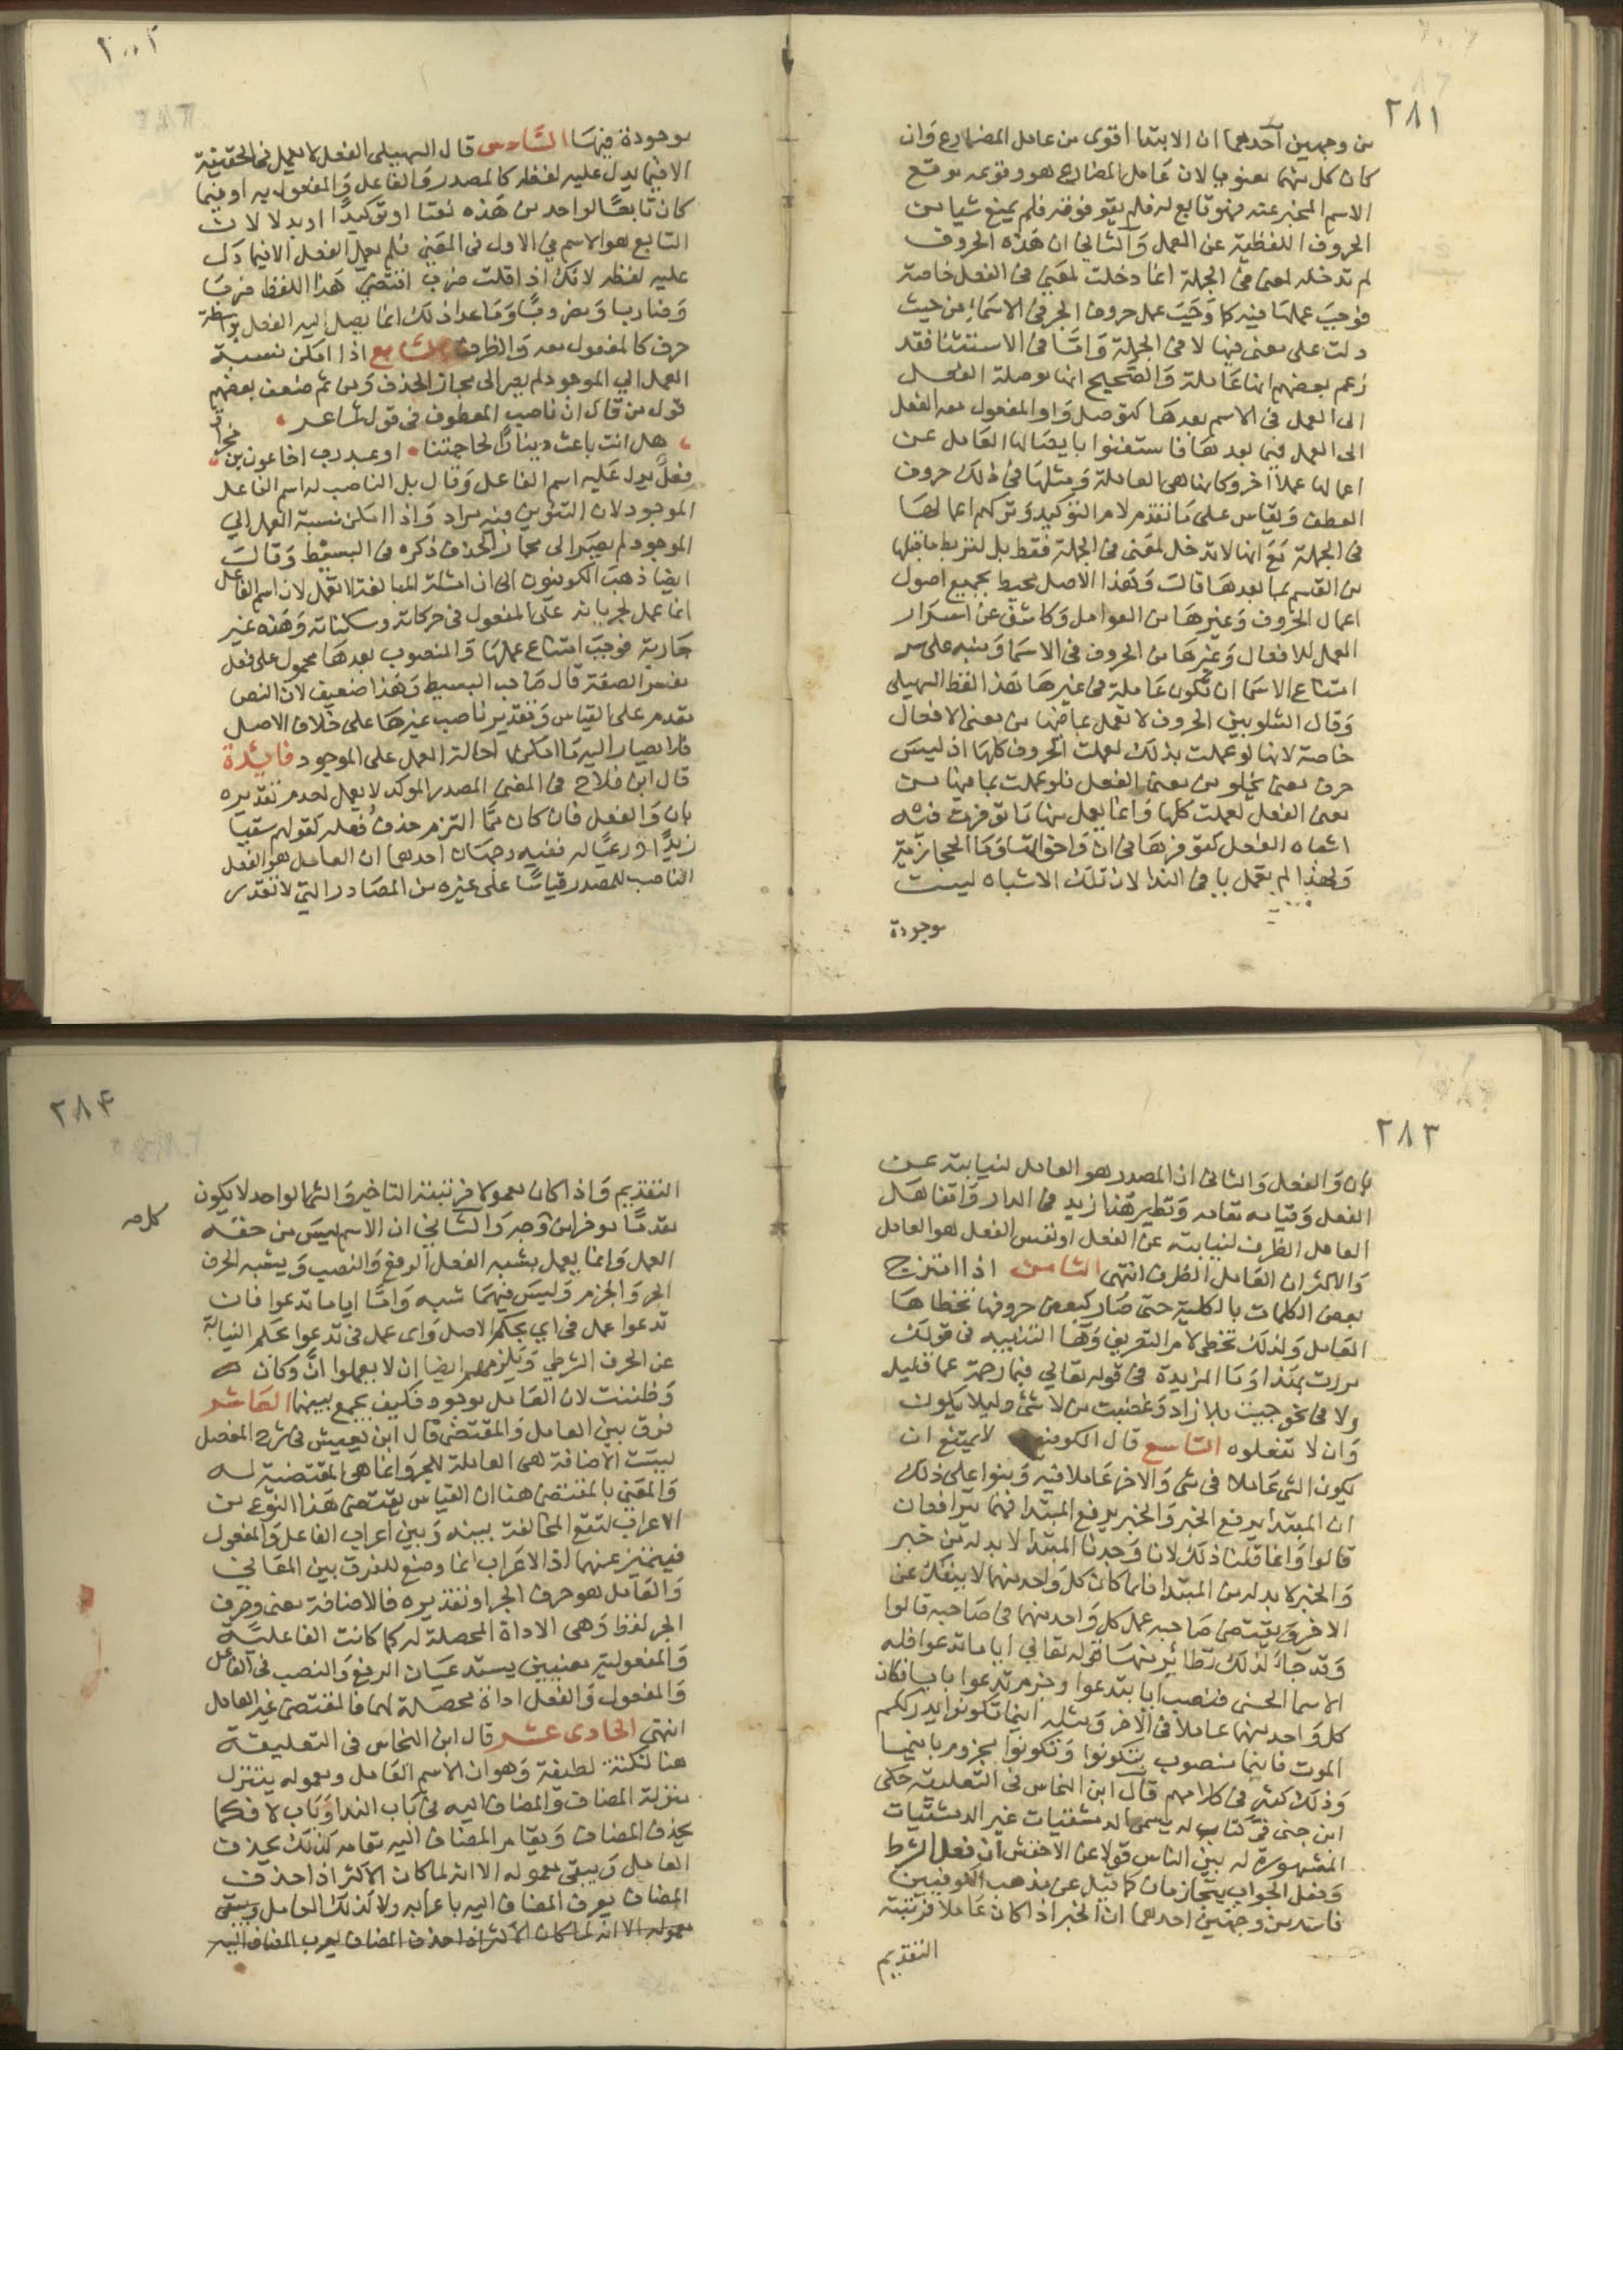 ٢٨١
من وجهين آحدهما ان الابتدا اقوى من عامل المضارع وان
كان كل منهما معنويا لان عامل المضارع هو وقوعه موقع
الاسم المخبر عنه فهو تابع له فلم يقو قوته فلم يمنع شيا من
الحروف اللفظية عن العمل والثاني ان هذه الحروف
لم تدخله لمعنى في الجملة انما دخلت لمعنى في الفعل خاصة
فوجب عملها فيه كما وجب عمل حروف الجر في الاسماء من حيث
دلت على معنى فيها لا في الجملة واما في الاستثنا فقد
زعم بعضهم انها عاملة والصحيح انها موصلة الفعل
الى العمل في الاسم بعدها كتوصل واو المفعول معه الفعل
الى العمل فيما بعدها فاستغنوا بايصالها العامل عن
اعمالها عملا آخر وكانها هي العاملة ومثلها في ذلك حروف
العطف ويقاس على ما تقدم لام التوكيد وتركهم اعمالها
في الجملة مع انها لا تدخل لمعنى في الجملة فقط بل لتربط ما قبلها
من القسم بما بعدها قال وهذا الاصل يحيط بجميع اصول
اعمال الحروف وغيرها من العوامل وكاشف عن اسرار
العمل للافعال وغيرها من الحروف في الاسما ومنبه على سر
امتناع الاسما ان تكون عاملة في غيرها هذا لفظ السهيلي
وقال الشلوبين الحروف لا تعمل بما فيها من معنى الافعال
خاصة لانها لو عملت بذلك لعملت الحروف كلها اذ ليس
حرف معنى يخلو من معنى الفعل فلو عملت بما فيها من
معنى الفعل لعملت كلها وانما يعمل منها ما توفرت فيه
اشباه الفعل كتوفرها في ان واخواتها وما الحجازية
ولهذا لم تعمل يا في الندا لان تلك الاشباه ليست
موجودة
موجودة فيها السادس قال السهيلي الفعل لا يعمل في الحقيقة
الا فيما يدل عليه لفظه كالمصدر والفاعل والمفعول به او فيما
كان تابعا لواحد من هذه نعتا او توكيدا او بدلا لان
التابع هو الاسم في الاول في المعنى فلم يعمل الفعل الا فيما دل
عليه لفظه لانك اذا قلت ضرب اقتضى هذا اللفظ ضربا
وضاربا ومضروبا وما عدا ذلك انما يصل اليه الفعل بواسطة
حرف كالمفعول معه والظرف السابع اذا امكن نسبة
العمل الى الموجود لم يصر الى مجاز الحذف ومن ثم ضعف بعضهم
قول من قال ان ناصب المعطوف في قول الشاعر
هل انت باعث دينار لحاجتنا او عبد رب اخا عون بن مخراق
فعل يدل عليه اسم الفاعل وقال بل الناصب له اسم الفاعل
الموجود لان التنوين فيه مراد واذا امكن نسبة العمل الى
الموجود لم يصر الى مجاز الحذف ذكره في البسيط وقال
ايضا ذهب الكوفيون الى ان امثلة المبالغة لا تعمل لان اسم الفاعل
انما عمل لجريانه على المفعول في حركاته وسكناته وهذه غير
جارية فوجب امتناع عملها والمنصوب بعدها محمول على فعل
تفسره الصفة قال صاحب البسيط وهذا ضعيف لان النص
مقدم على القياس وتقدير ناصب غيرها على خلاف الاصل
فلا يصار اليه ما امكن احالة العمل على الموجود فايدة
قال ابن فلاح في المغني المصدر الموكد لا يعمل لعدم تقديره
بان والفعل فان كان مما التزم حذف فعله كقولهم سقيا
زيدا ورعيا له ففيه وجهان احدهما ان العامل هو الفعل
الناصب للمصدر قياسا على غيره من المصادر التي لا تقدر
٢٨٣
بان والفعل والثاني ان المصدر هو العامل لنيابته عن
الفعل وقيامه مقامه ونظير هذا زيد في الدار واقفا هل
العامل الظرف لنيابته عن الفعل او نفس الفعل هو العامل
والاكثر ان العامل الظرف انتهى الثامن اذا امتزج
بعض الكلمات بالكلمة حتى صار كبعض حروفها تخطاها
العامل ولذلك تخطى لام التعريف وها التنبيه في قولك
مررت بهذا وما المزيدة في قوله تعالى فبما رحمة عما قليل
ولا في نحو جيت بلا زاد وغضبت من لا شئ وليلا يكون
وان لا تفعلوه التاسع قال الكوفيون لا يمتنع ان
يكون الشي عاملا في شي والاخر عاملا فيه وبنوا على ذلك
ان المبتدا يرفع الخبر والخبر يرفع المبتدا فهما يترافعان
قالوا وانما قلنا ذلك لانا وجدنا المبتدا لا بد له من خبر
والخبر لا بد له من المبتدا فلما كان كل واحد منهما لا ينفك عن
الاخر ويقتضي صاحبه عمل كل واحد منهما في صاحبه قالوا
وقد جاء لذلك نظائر منها قوله تعالى ايا ما تدعوا فله
الاسما الحسنى فنصب ايا بتدعوا وجزم تدعوا بايا فكان
كل واحد منهما عاملا في الاخر ومثله اينما تكونوا يدرككم
الموت فاينما منصوب بتكونوا وتكونوا مجزوم باينما
وذلك كثير في كلامهم قال ابن النحاس في التعليقة حكى
ابن جني في كتاب له يسمى الدمشقيات غير الدمشقيات
المشهورة له بين الناس قولا عن الاخفش ان فعل الشرط
وفعل الجواب يتجازمان كما قيل عن مذهب الكوفيين
فاسد من وجهين احدهما ان الخبر اذا كان عاملا فرتبته
التقديم
٢٨٤
التقديم واذا كان معمولا فرتبته التاخير والشي الواحد لا يكون
مقدما موخرا من وجه والثاني ان الاسم ليس من حقه
العمل وانما يعمل بشبه الفعل الرفع والنصب ويشبه الحرف
الجر والجزم وليس فيهما شبه واما ايا ما تدعوا فان
تدعوا عمل في اي بحكم الاصل واي عمل في تدعوا بحكم النيابة
عن الحرف الشرطي ويلزمهم ايضا ان لا يعملوا ان وكان
وظننت لان العامل موجود فكيف يجمع بينهما العاشر
فرق بين العامل والمقتضي قال ابن يعيش في شرح المفصل
ليست الاضافة هي العاملة للجر وانما هي المقتضية له
والمعنى بالمقتضي هنا ان القياس يقتضي هذا النوع من
الاعراب لتقع المخالفة بينه وبين اعراب الفاعل والمفعول
فيتميز عنهما اذ الاعراب انما وضع للفرق بين المعاني
والعامل هو حرف الجر او تقديره فالاضافة معنى وحرف
الجر لفظ وهي الاداة المحصلة له كما كانت الفاعلية
والمفعولية معنيين يستدعيان الرفع والنصب في الفاعل
والمفعول والفعل اداة محصلة لهما فالمقتضي غير العامل
انتهى الحادى عشر قال ابن النحاس في التعليقة
هنا نكتة لطيفة وهو ان الاسم العامل ومعموله يتنزل
منزلة المضاف والمضاف اليه في باب الندا وباب لا فكما
يحذف المضاف ويقام المضاف اليه مقامه كذلك يحذف
العامل ويبقى معموله الا انه لما كان الاكثر اذا حذف
المضاف يعرب المضاف اليه باعرابه ولا كذلك العامل ويبقى
معموله الا انه لما كان الاكثر اذا حذف المضاف يعرب المضاف اليه